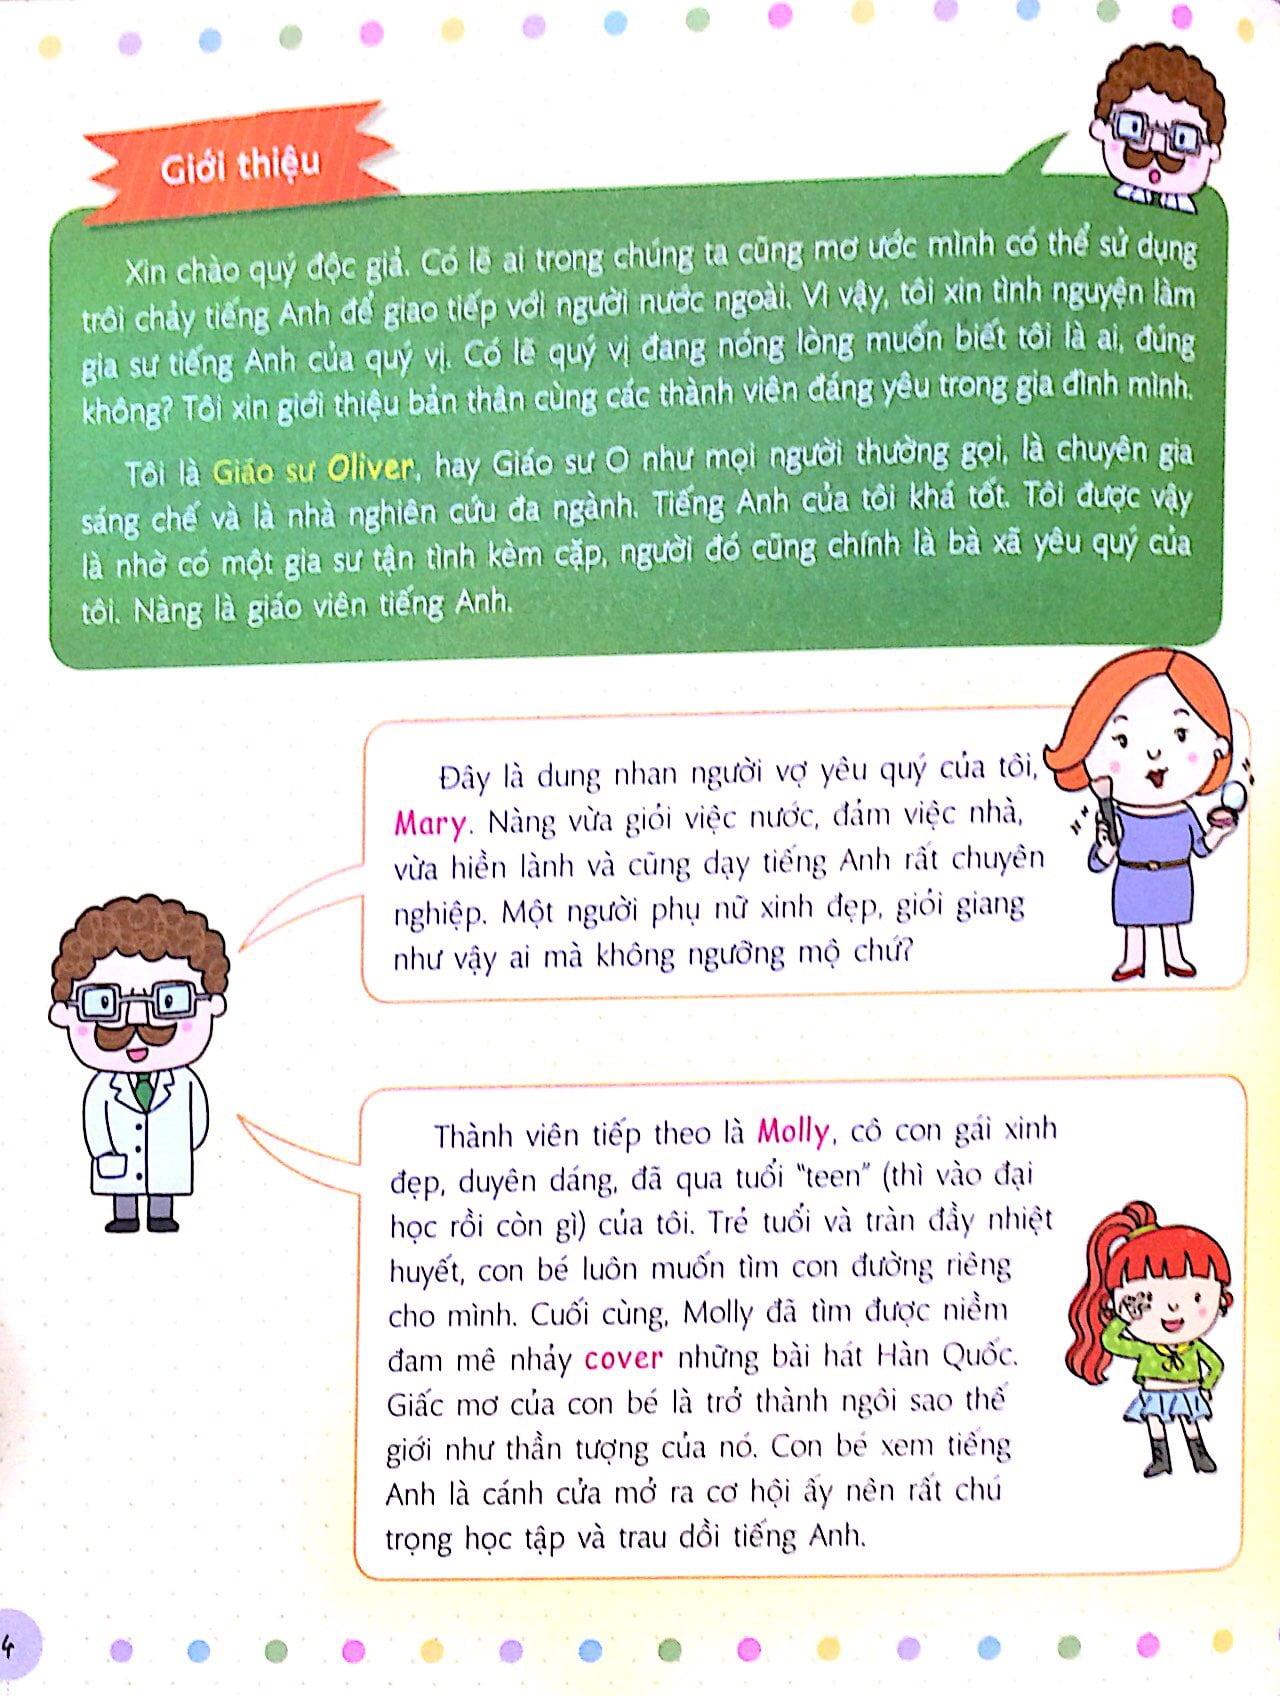 Giới thiệu
Xin chào quý độc giả. Có lẽ ai trong chúng ta cũng mơ ước mình có thể sử dụng
trôi chảy tiếng Anh để giao tiếp với người nước ngoài. Vì vậy, tôi xin tình nguyện làm
gia sư tiếng Anh của quý vị. Có lẽ quý vị đang nóng lòng muốn biết tôi là ai, đúng
không? Tôi xin giới thiệu bản thân cùng các thành viên đáng yêu trong gia đình mình.
Tôi là Giáo sư Oliver, hay Giáo sư O như mọi người thường gọi, là chuyên gia
sáng chế và là nhà nghiên cứu đa ngành. Tiếng Anh của tôi khá tốt. Tôi được vậy
là nhờ có một gia sư tận tình kèm cặp, người đó cũng chính là bà xã yêu quý của
tôi. Nàng là giáo viên tiếng Anh.
Đây là dung nhan người vợ yêu quý của tôi,
Mary. Nàng vừa giỏi việc nước, đảm việc nhà,
vừa hiền lành và cũng dạy tiếng Anh rất chuyên
nghiệp. Một người phụ nữ xinh đẹp, giỏi giang
như vậy ai mà không ngưỡng mộ chứ?
Thành viên tiếp theo là Molly, cô con gái xinh
đẹp, duyên dáng, đã qua tuổi "teen" (thì vào đại
học rồi còn gì) của tôi. Trẻ tuổi và tràn đầy nhiệt
huyết, con bé luôn muốn tìm con đường riêng
cho mình. Cuối cùng, Molly đã tìm được niềm
đam mê nhảy cover những bài hát Hàn Quốc.
Giấc mơ của con bé là trở thành ngôi sao thế
giới như thần tượng của nó. Con bé xem tiếng
Anh là cánh cửa mở ra cơ hội ấy nên rất chú
trọng học tập và trau dồi tiếng Anh.
4